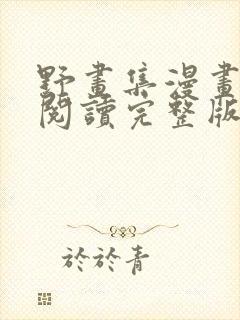 野畫集漫畫
閱讀完整版
於於青